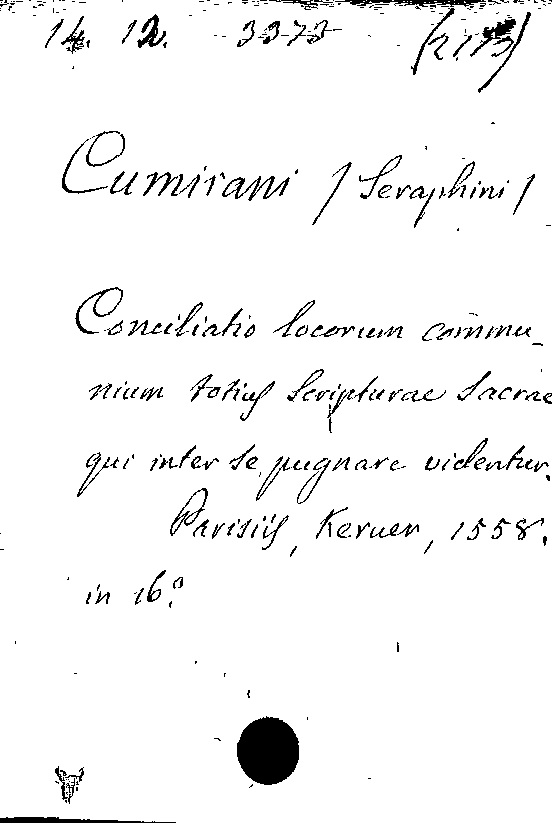 14. 12. 3373 (2113)
Cumirani / Seraphini /
Conciliatio locorum commu_
nium totius Scripturae Sacrae
qui inter se pugnare videntur.
Parisiis, Keruer, 1558.
in 16.º